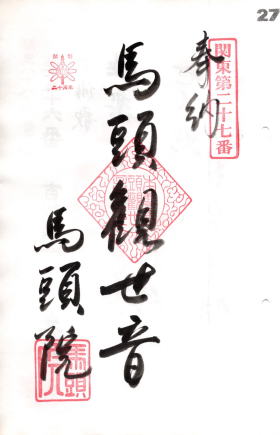 27
関東第二十七番
奉納
馬頭觀世音
馬頭院
馬頭院